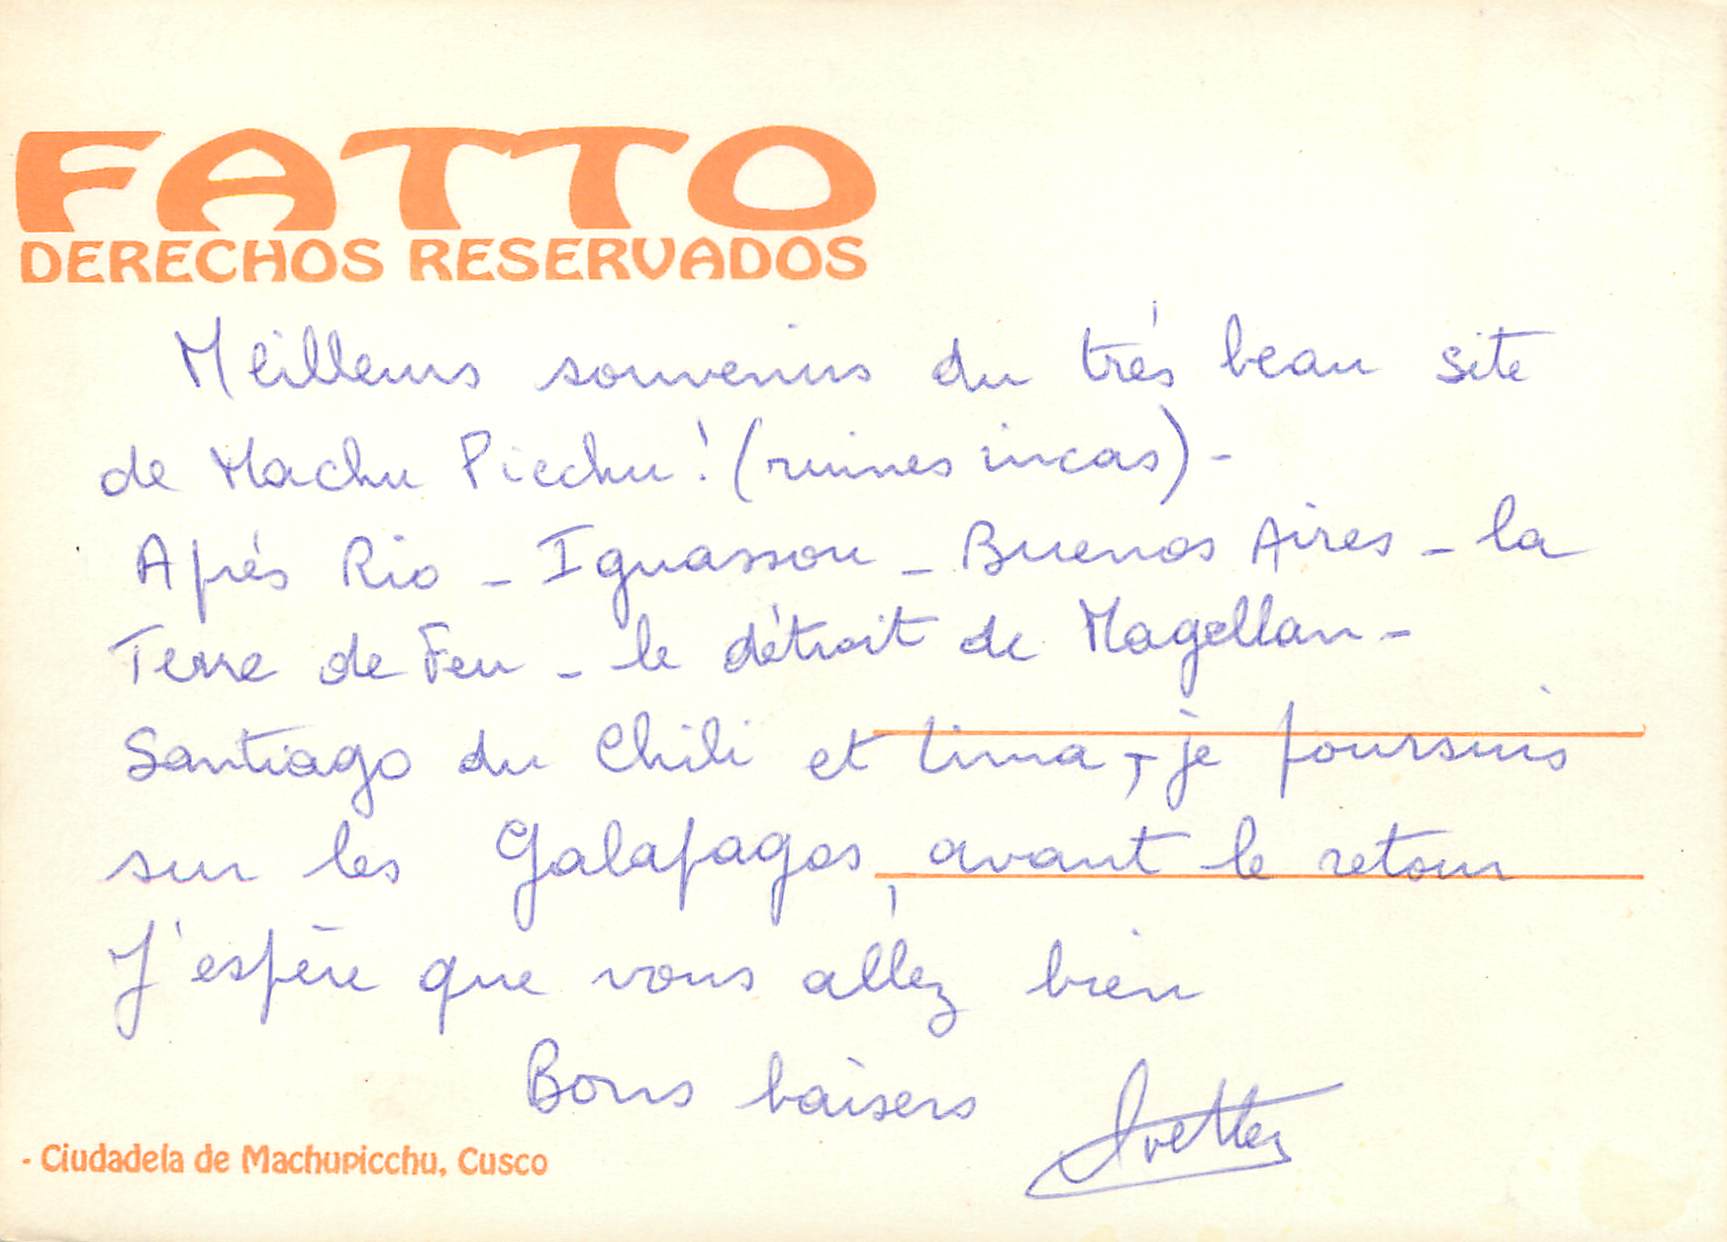 FATTO
DERECHOS RESERVADOS
Meilleurs souvenirs du très beau site
de Machu Picchu ! (ruines incas) -
Après Rio - Iguassou - Buenos Aires - la
Terre de Feu - le détroit de Magellan -
Santiago du Chili et Lima, je poursuis
sur les Galapagos, avant le retour
J'espère que vous allez bien
Bons baisers Yvette
- Ciudadela de Machupicchu, Cusco